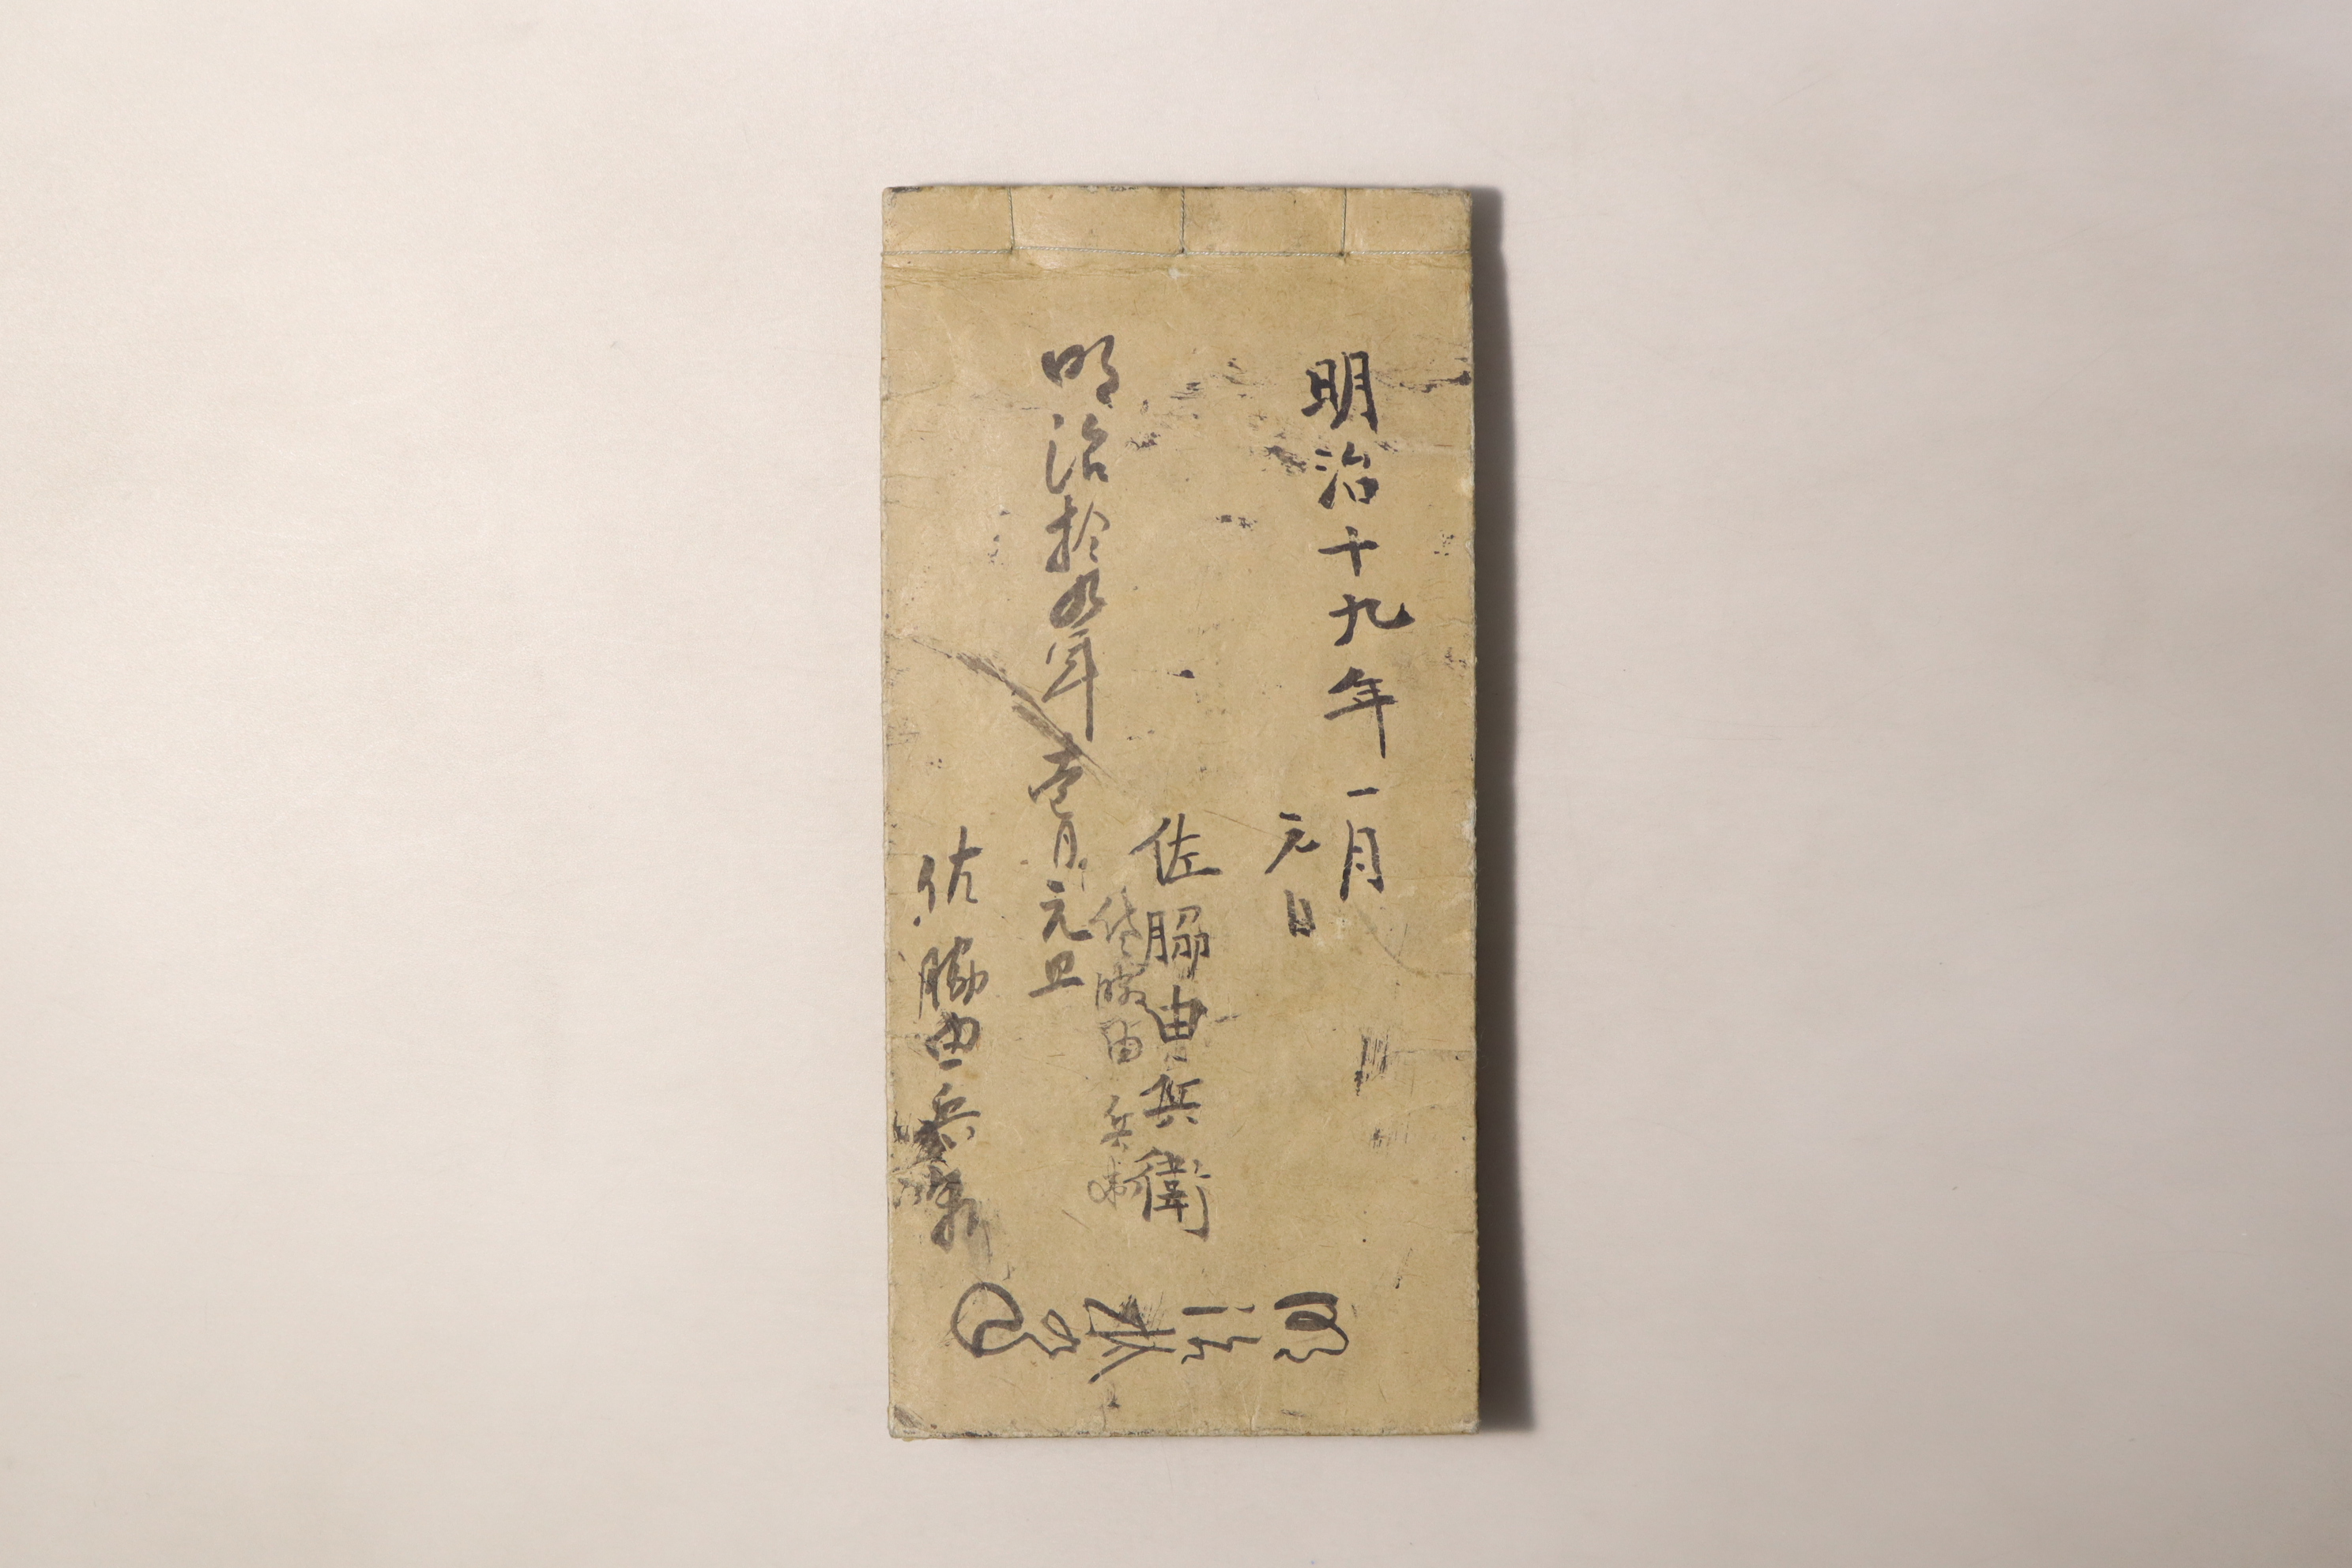 明治十九年一月
元日
佐脇由兵衛
佐脇由兵衛
明治拾九年壱月元旦
佐脇由兵衛